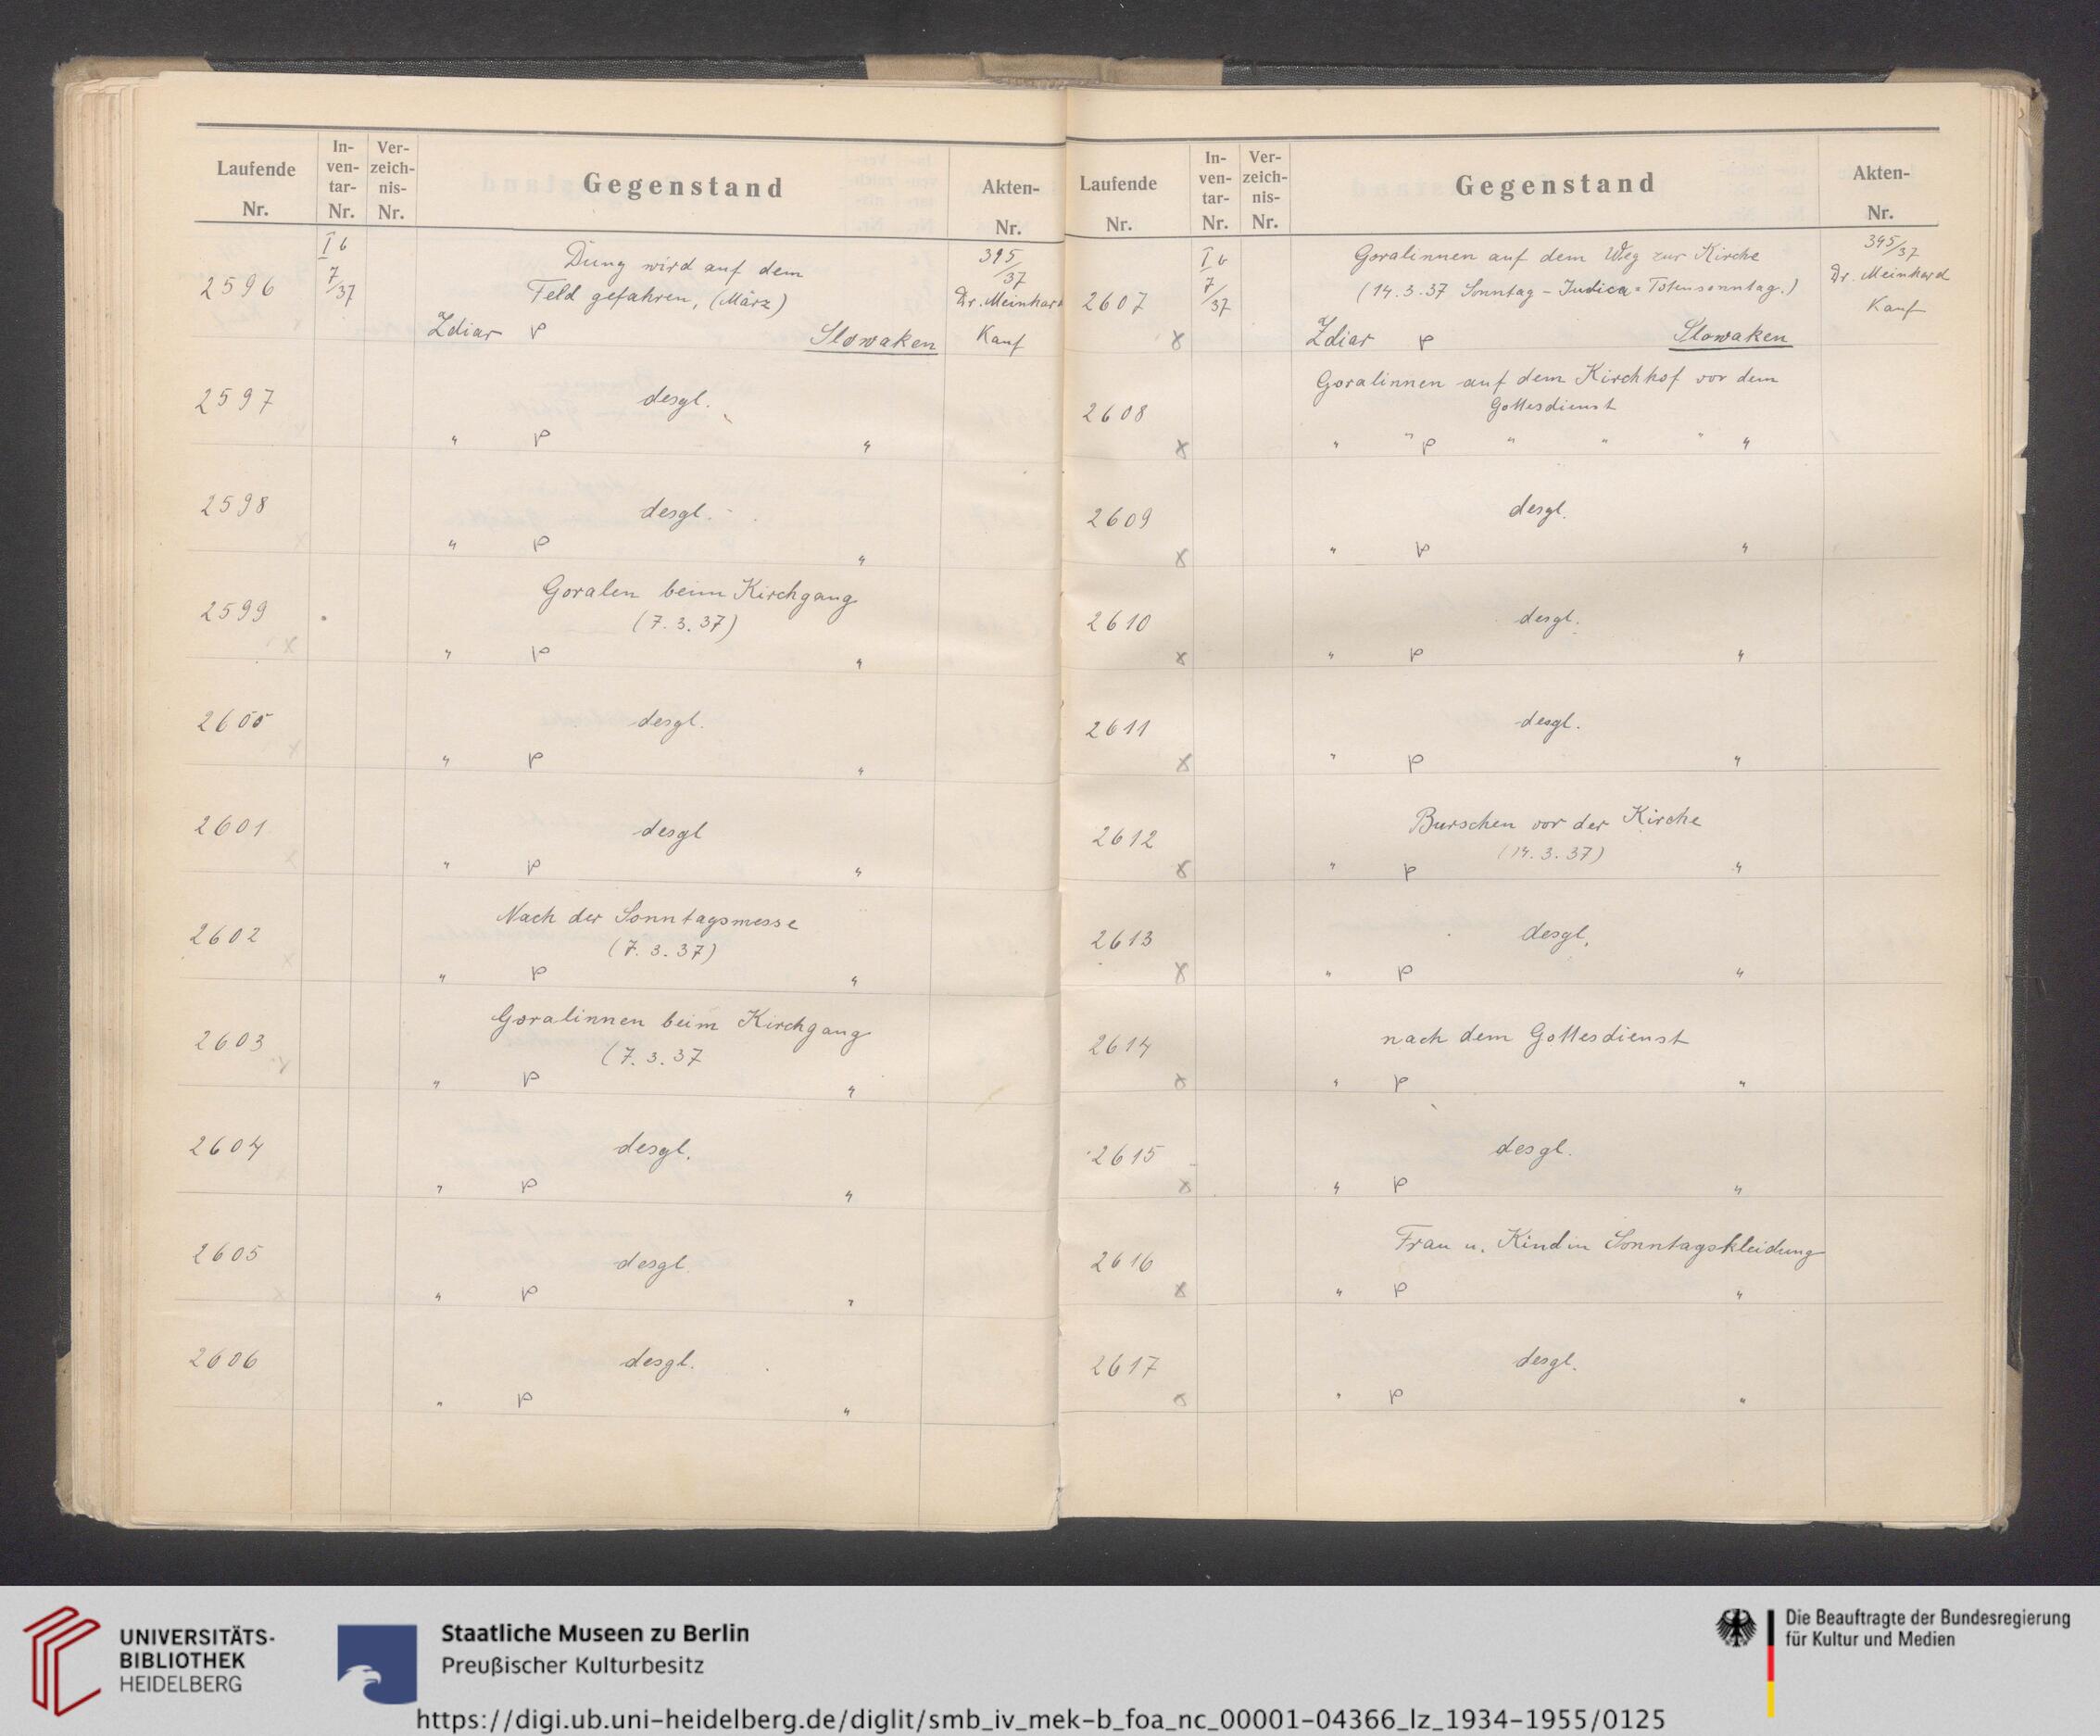 Laufende Nr.
In-ven-tar-Nr.
Ver-zeich-nis-Nr.
Gegenstand
Akten-Nr.
I b
7/37
2596
Dung wird auf dem
Feld gefahren, (März)
Zdiar P Slowaken
395/37
Dr. Meinhard
Kauf
2597
desgl.
" P "
2598
desgl.
" P "
2599
Goralen beim Kirchgang
(7.3.37)
" P "
2600
desgl.
" P "
2601
desgl
" P "
2602
Nach der Sonntagsmesse
(7.3.37)
" P "
2603
Goralinnen beim Kirchgang
(7.3.37
" P "
2604
desgl.
" P "
2605
desgl.
" P "
2606
desgl.
" P "
Laufende Nr.
In-ven-tar-Nr.
Ver-zeich-nis-Nr.
Gegenstand
Akten-Nr.
I b
7/37
2607
Goralinnen auf dem Weg zur Kirche
(14.3.37 Sonntag - Judica = Totensonntag.)
x Zdiar P Slowaken
395/37
Dr. Meinhard
Kauf
Goralinnen auf dem Kirchhof vor dem
2608
Gottesdienst
x " " P " " " "
2609
desgl.
x " P "
2610
desgl.
x " P "
2611
desgl.
x " P "
2612
Burschen vor der Kirche
(14.3.37)
x " P "
2613
desgl.
x " P "
2614
nach dem Gottesdienst
x " P "
2615
desgl.
x " P "
2616
Frau u. Kind in Sonntagskleidung
x " P "
2617
desgl.
x " P "
UNIVERSITÄTS-
BIBLIOTHEK
HEIDELBERG
Staatliche Museen zu Berlin
Preußischer Kulturbesitz
Die Beauftragte der Bundesregierung
für Kultur und Medien
https://digi.ub.uni-heidelberg.de/diglit/smb_iv_mek-b_foa_nc_00001-04366_lz_1934-1955/0125